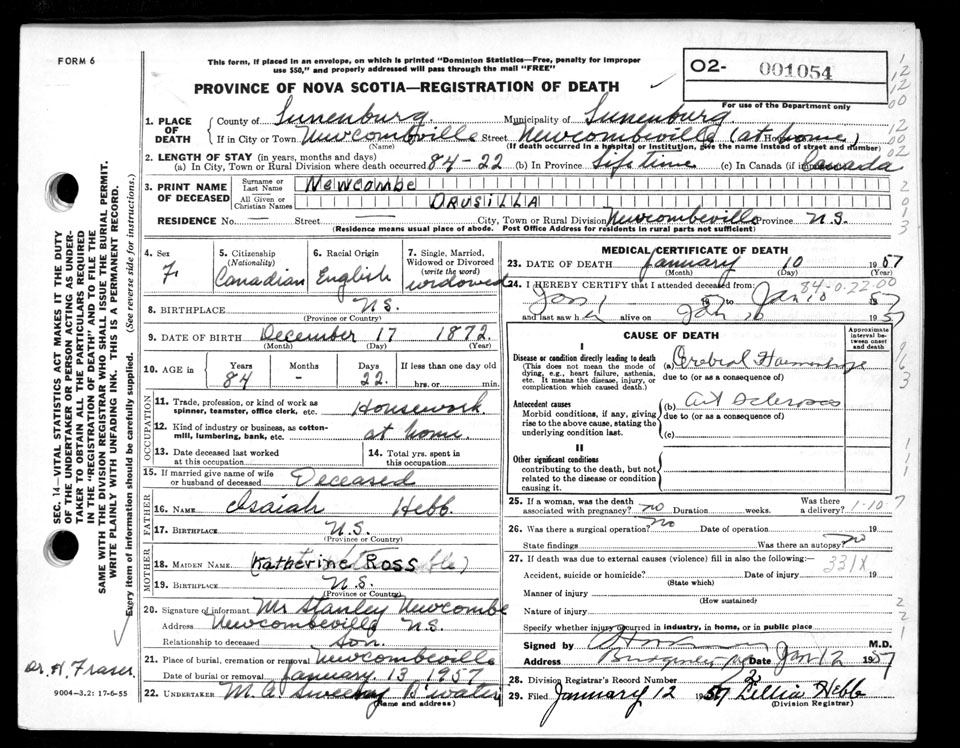 FORM 6
This form, if placed in an envelope, on which is printed "Dominion Statistics—Free, penalty for improper
use $50," and properly addressed will pass through the mail "FREE"
O2- 001054
For use of the Department only
PROVINCE OF NOVA SCOTIA—REGISTRATION OF DEATH
1. PLACE OF DEATH
County of Lunenburg Municipality of Lunenburg
If in City or Town Newcombville Street Newcombeville (at home)
(Name) (If death occurred in a hospital or institution, give the name instead of street and number)
2. LENGTH OF STAY (in years, months and days)
(a) In City, Town or Rural Division where death occurred 84-22 (b) In Province Life time (c) In Canada (if immigrant) Canada
3. PRINT NAME OF DECEASED
Surname or Last Name NEWCOMBE
All Given or Christian Names DRUSILLA
RESIDENCE No. — Street — City, Town or Rural Division Newcombeville Province N.S.
(Residence means usual place of abode. Post Office Address for residents in rural parts not sufficient)
4. Sex F.
5. Citizenship (Nationality) Canadian
6. Racial Origin English
7. Single, Married, Widowed or Divorced (write the word) widowed
8. BIRTHPLACE N.S.
(Province or Country)
9. DATE OF BIRTH December 17 1872.
(Month) (Day) (Year)
10. AGE in Years 84 Months - Days 22. If less than one day old
hrs. or min.
OCCUPATION
11. Trade, profession, or kind of work as spinner, teamster, office clerk, etc. Housework
12. Kind of industry or business, as cotton-mill, lumbering, bank, etc. at home.
13. Date deceased last worked at this occupation
14. Total yrs. spent in this occupation
15. If married give name of wife or husband of deceased Deceased
FATHER
16. NAME Isaiah Hebb.
17. BIRTHPLACE N.S.
(Province or Country)
MOTHER
18. MAIDEN NAME (Katherine Ross)
19. BIRTHPLACE N.S.
(Province or Country)
20. Signature of informant Mr Stanley Newcombe
Address Newcombeville N.S.
Relationship to deceased Son.
21. Place of burial, cremation or removal Newcombeville
Date of burial or removal January 13 1957
22. UNDERTAKER M. A Sweeny B'water
(Name and address)
MEDICAL CERTIFICATE OF DEATH
23. DATE OF DEATH January 10 1957
(Month) (Day) (Year)
84-0-22-00
24. I HEREBY CERTIFY that I attended deceased from:
Jan 1 57 to Jan 10 1957
and last saw h alive on Jan 10 1957
CAUSE OF DEATH
Approximate interval between onset and death
I
Disease or condition directly leading to death
(This does not mean the mode of dying, e.g., heart failure, asthenia, etc. It means the disease, injury, or complication which caused death.)
(a) Cerebral Haemorrhage
due to (or as a consequence of)
Antecedent causes
Morbid conditions, if any, giving rise to the above cause, stating the underlying condition last.
(b) Art Sclerosis
due to (or as a consequence of)
(c)
II
Other significant conditions
contributing to the death, but not related to the disease or condition causing it.
25. If a woman, was the death associated with pregnancy? no Duration weeks. Was there a delivery?
1-10 7
26. Was there a surgical operation? no Date of operation 19
State findings Was there an autopsy? no
27. If death was due to external causes (violence) fill in also the following:—
331X
Accident, suicide or homicide? Date of injury 19
(State which)
Manner of injury
(How sustained)
Nature of injury
Specify whether injury occurred in industry, in home, or in public place
Signed by M.D.
Address Date Jan 12 1957
28. Division Registrar's Record Number 2
29. Filed January 12 1957 Lillia Hebb
(Division Registrar)
SEC. 14—VITAL STATISTICS ACT MAKES IT THE DUTY
OF THE UNDERTAKER OR PERSON ACTING AS UNDER-
TAKER TO OBTAIN ALL THE PARTICULARS REQUIRED
IN THE "REGISTRATION OF DEATH" AND TO FILE THE
SAME WITH THE DIVISION REGISTRAR WHO SHALL ISSUE THE BURIAL PERMIT.
WRITE PLAINLY WITH UNFADING INK. THIS IS A PERMANENT RECORD.
Every item of information should be carefully supplied. (See reverse side for instructions.)
Dr. H. Fraser
9004-3.2: 17-6-55